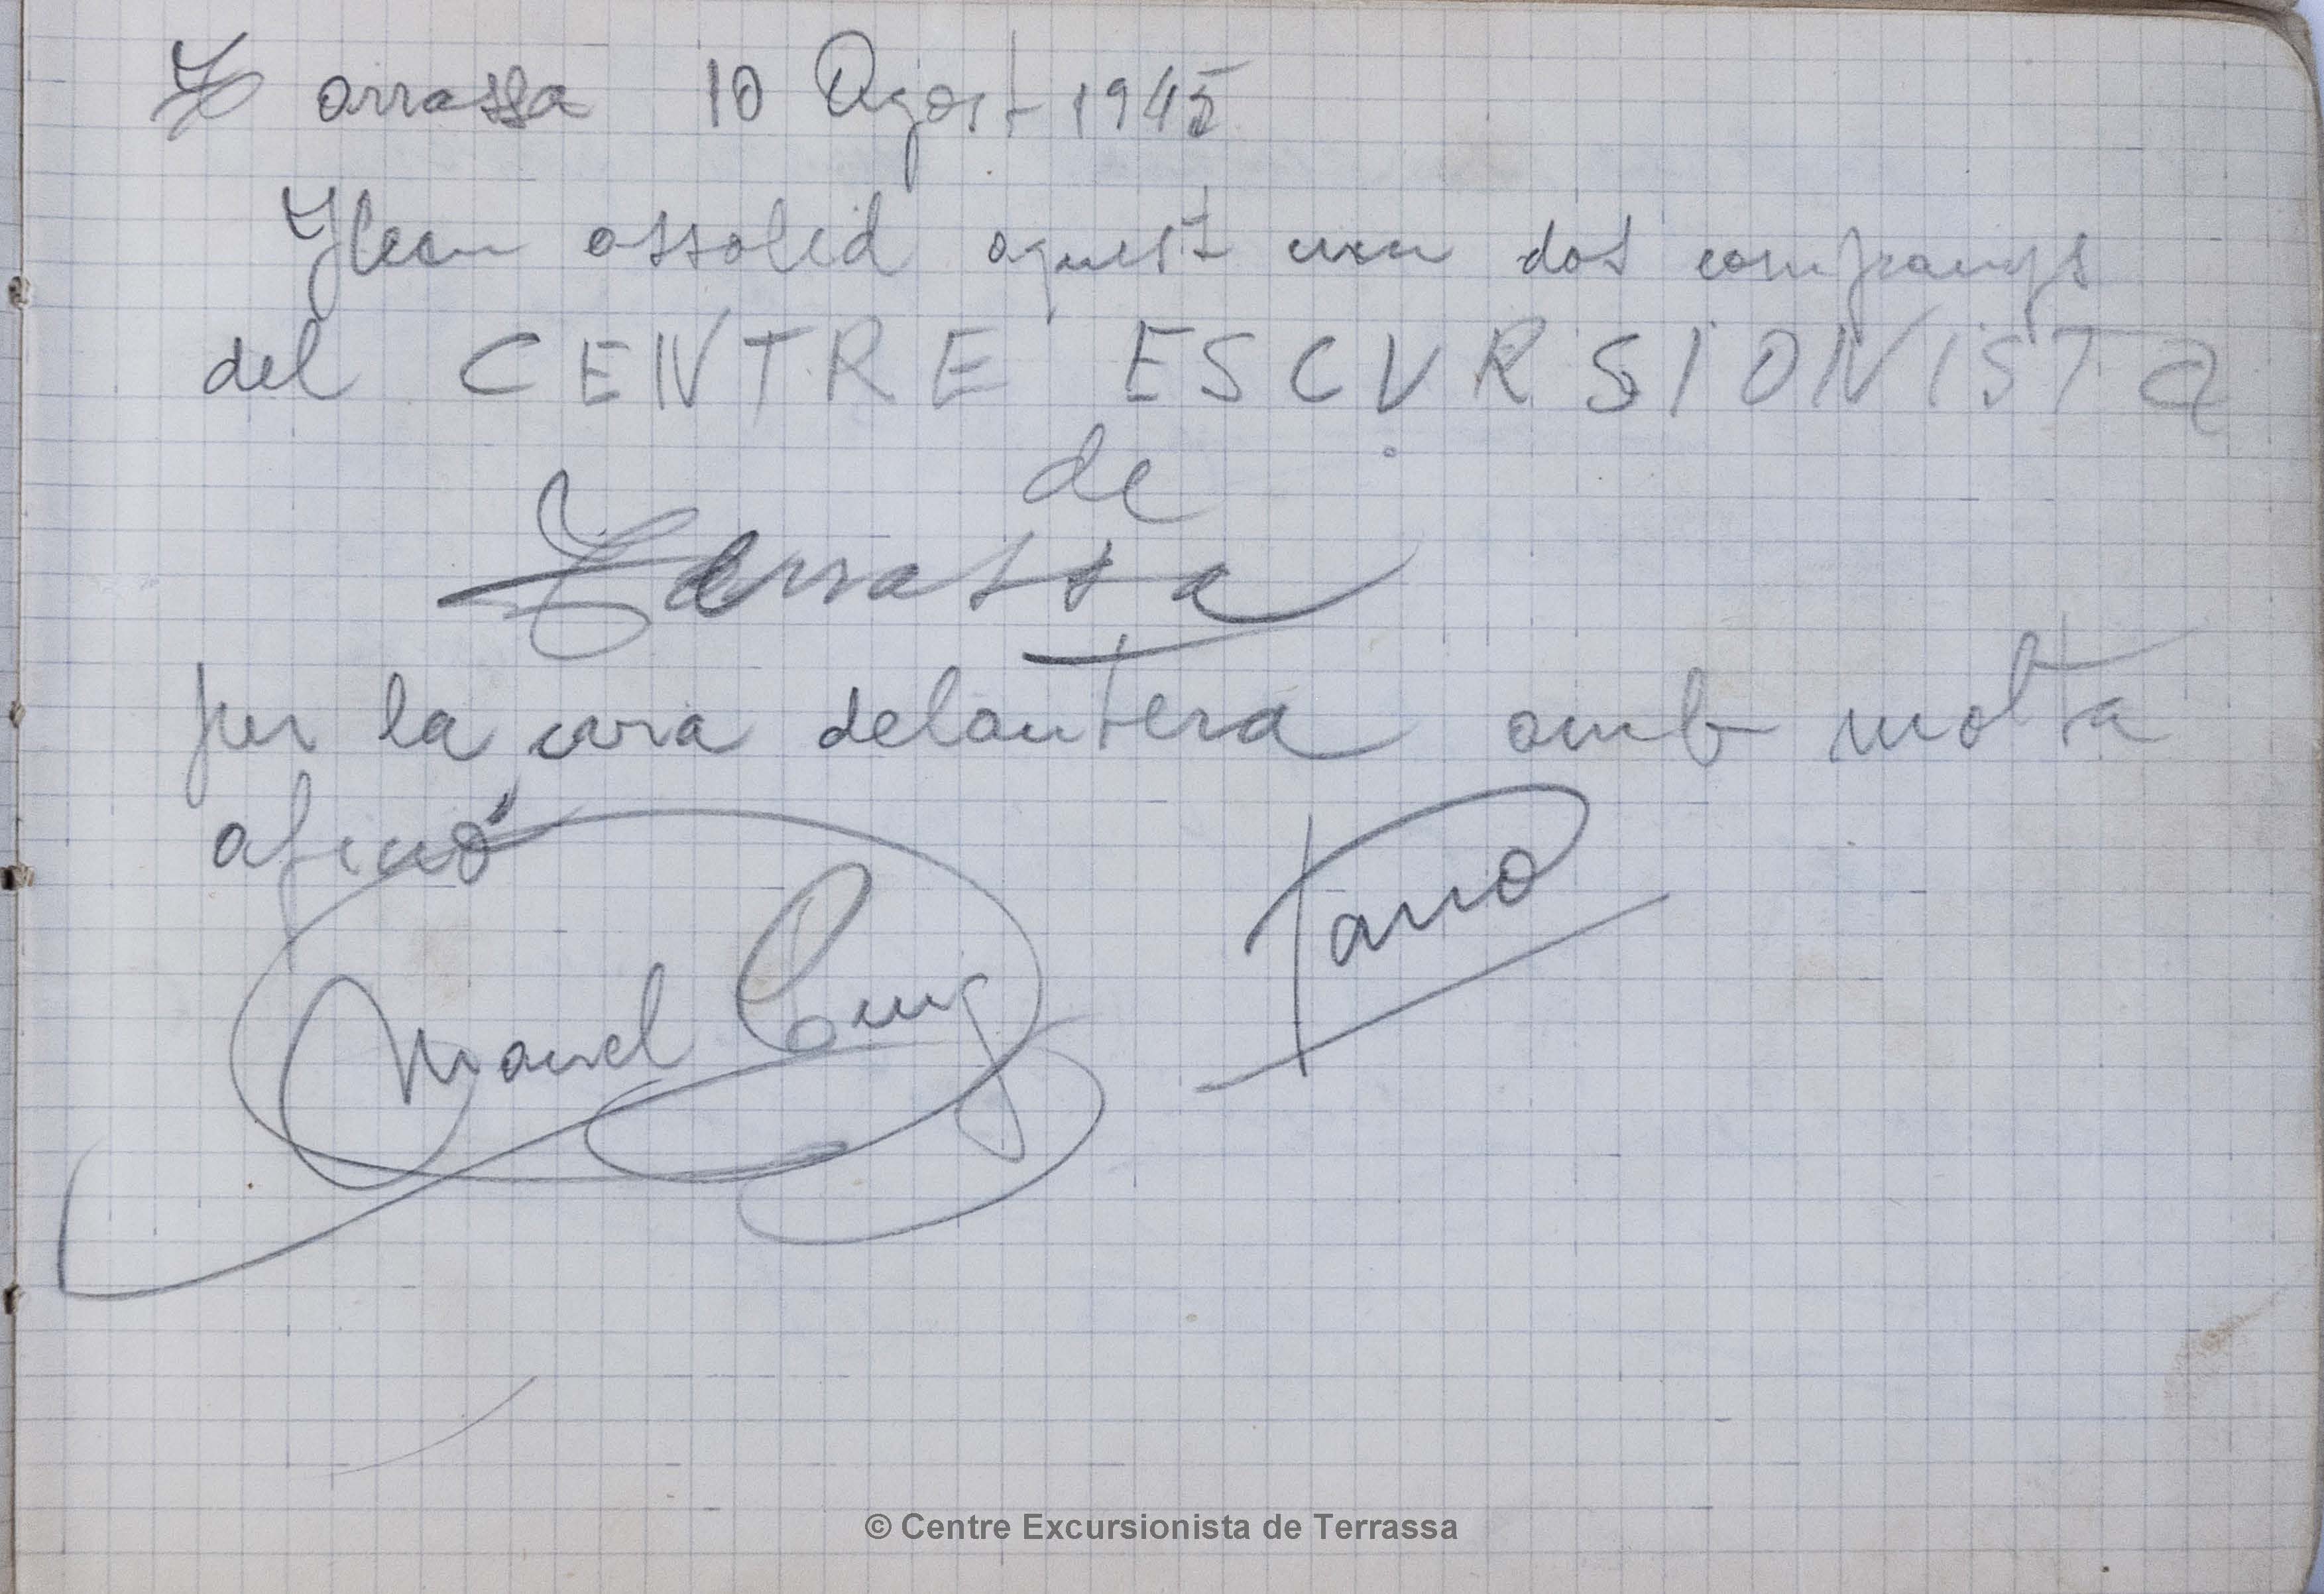 Tarrassa 10 Agost 1945
Hem assolid aquest cim dos companys
del CENTRE ESCURSIONISTa
de
Terrassa
per la cara delantera amb molta
afició
Manel Puig
© Centre Excursionista de Terrassa